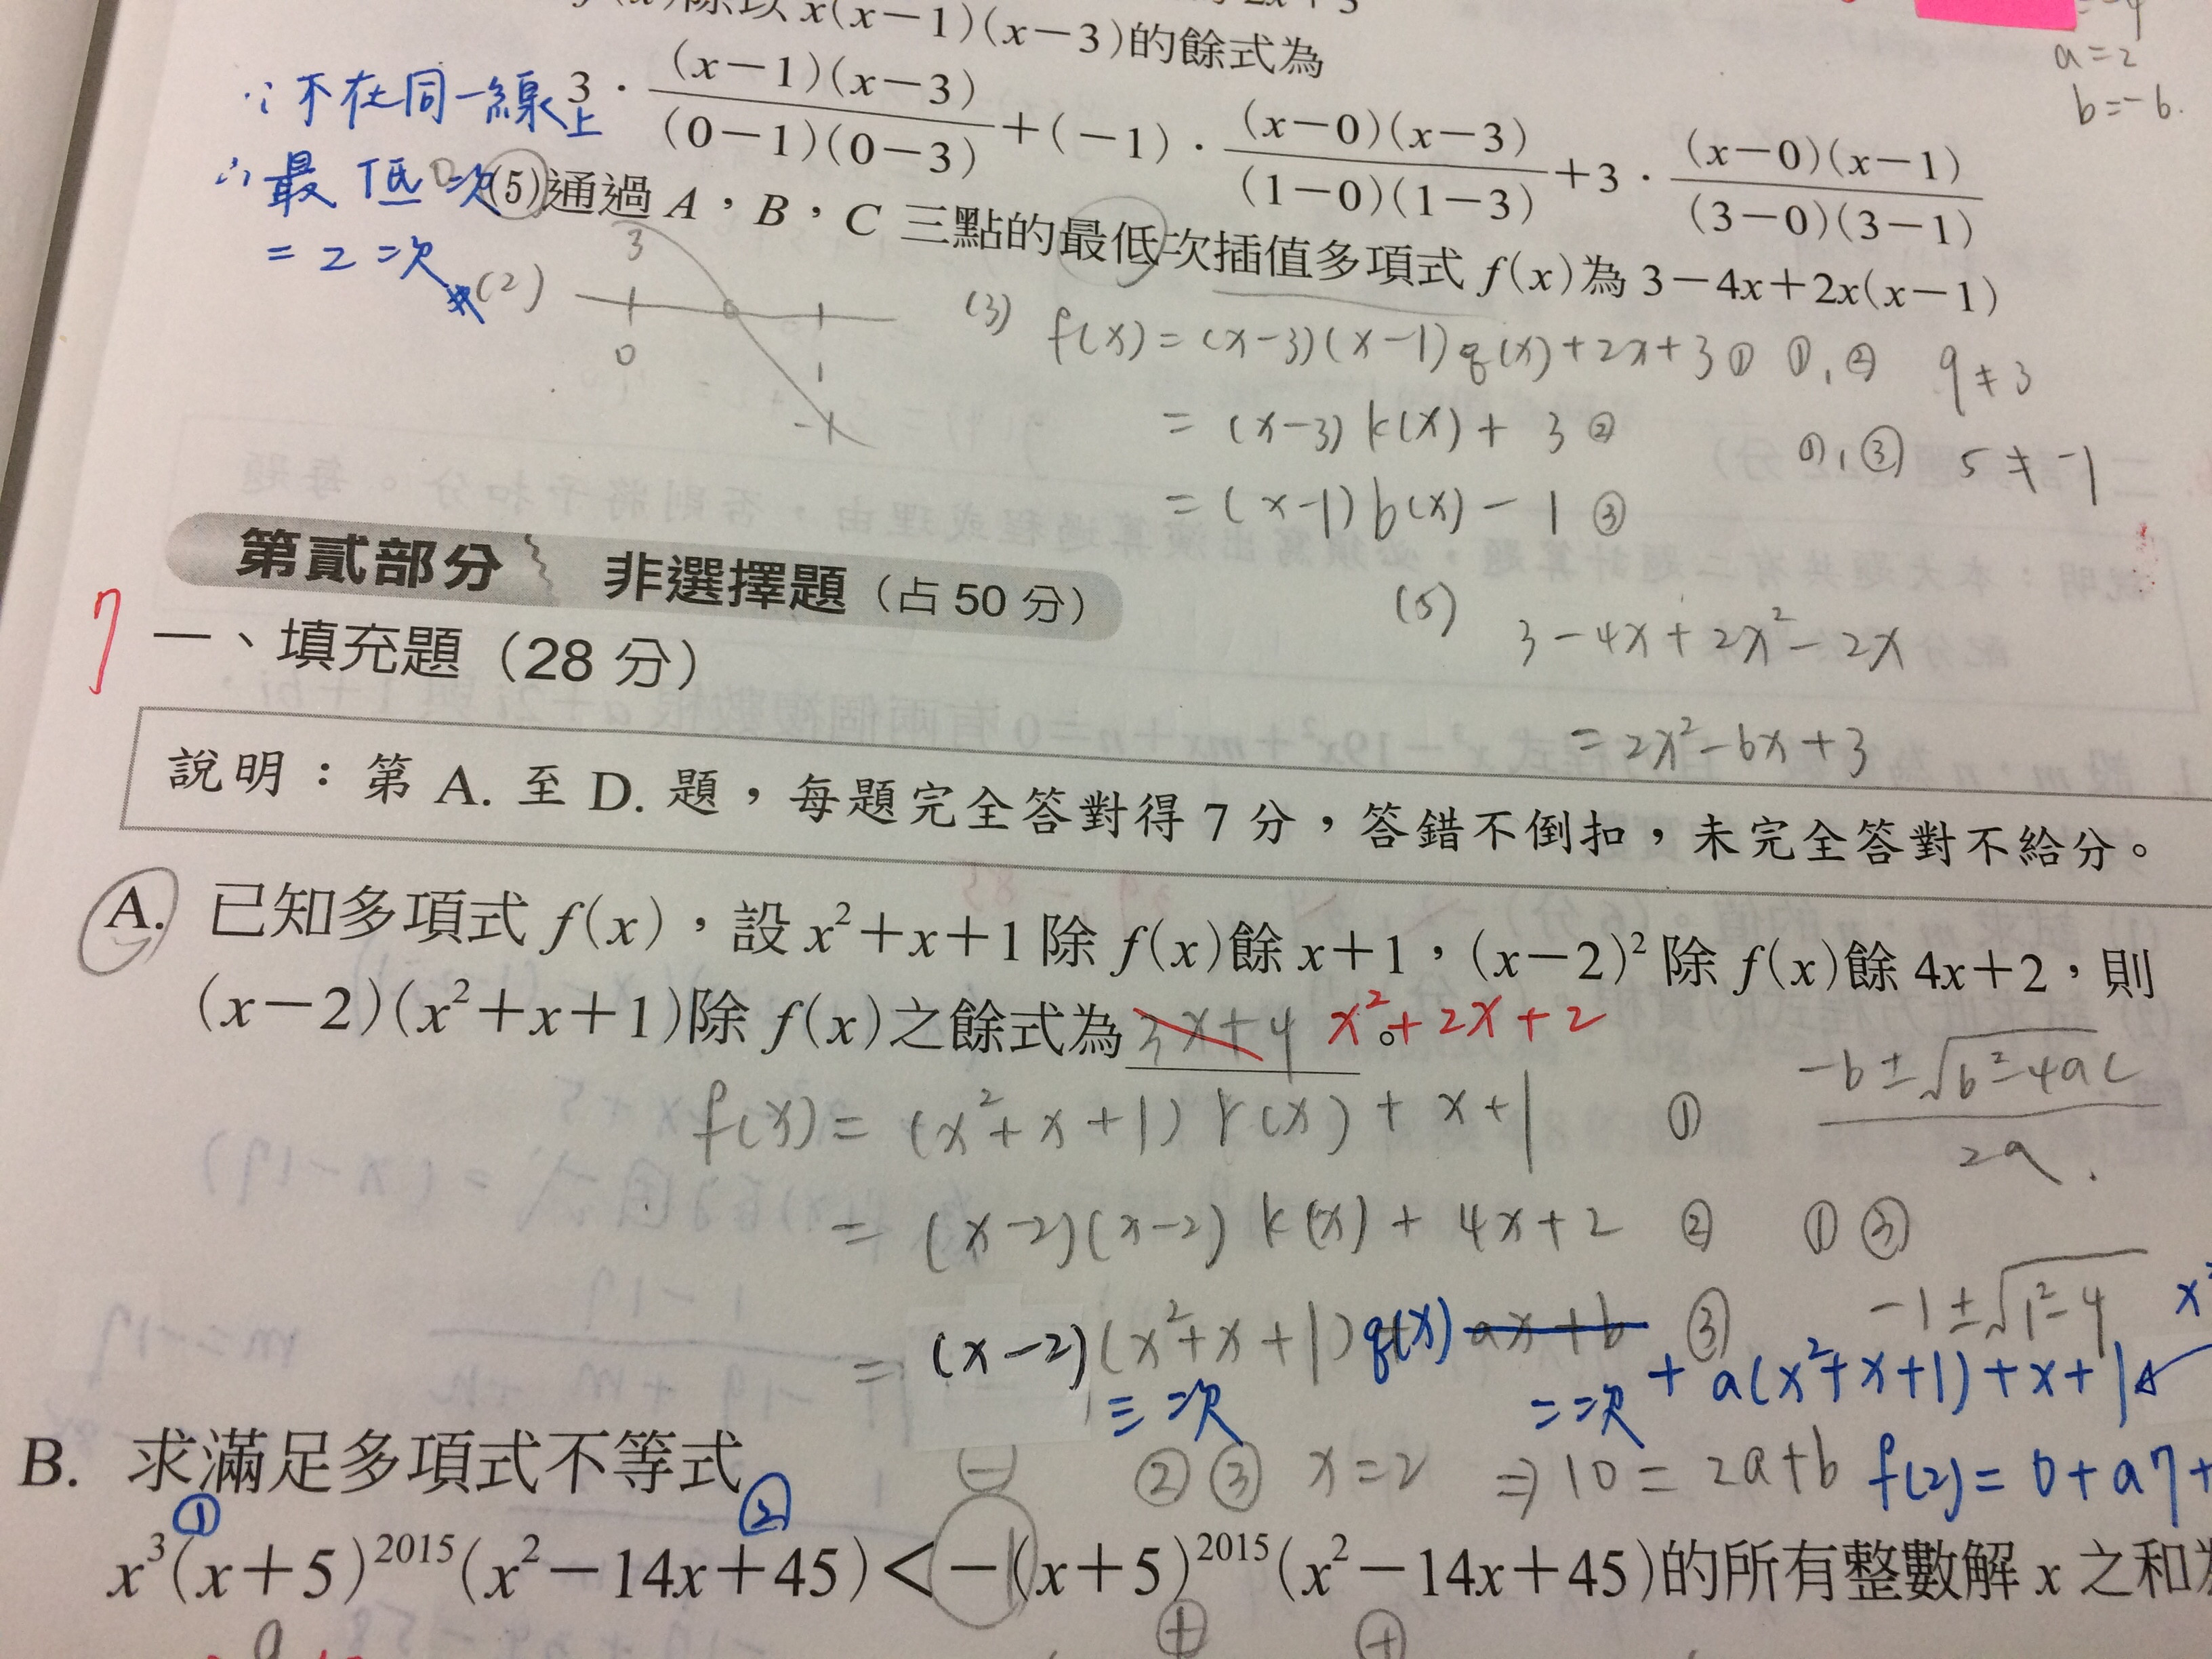 除以 x(x−1)(x−3)的餘式為
a=2
b=-6.
∵不在同一線上
3 · (x−1)(x−3)/(0−1)(0−3) +(−1) · (x−0)(x−3)/(1−0)(1−3) +3 · (x−0)(x−1)/(3−0)(3−1)
∴最低次
=2次
(5)通過 A，B，C 三點的最低次插值多項式 f(x)為 3−4x+2x(x−1)
(2)
3
0
1
-1
(3) f(x)=(x-3)(x-1)q(x)+2x+3 ① ①,② 9≠3
=(x-3)k(x)+3 ② ①,③ 5≠-1
=(x-1)b(x)-1 ③
第貳部分 非選擇題（占 50 分）
7
一、填充題（28 分）
(5) 3-4x+2x²-2x
=2x²-6x+3
說明：第 A. 至 D. 題，每題完全答對得 7 分，答錯不倒扣，未完全答對不給分。
A. 已知多項式 f(x)，設 x²+x+1 除 f(x)餘 x+1，(x−2)² 除 f(x)餘 4x+2，則
(x−2)(x²+x+1)除 f(x)之餘式為 3x+4 x²+2x+2 。
f(x)=(x²+x+1)r(x)+x+1 ①
-b±√b²-4ac
2a
=(x-2)(x-2)k(x)+4x+2 ② ①③
=(x-2)(x²+x+1)q(x) ax+b ③ -1±√1²-4
三次 =二次 + a(x²+x+1)+x+1
②③ x=2 ⇒10=2a+b f(2)=0+a7+
B. 求滿足多項式不等式
① ②
x³(x+5)²⁰¹⁵(x²−14x+45)<−(x+5)²⁰¹⁵(x²−14x+45)的所有整數解 x 之和